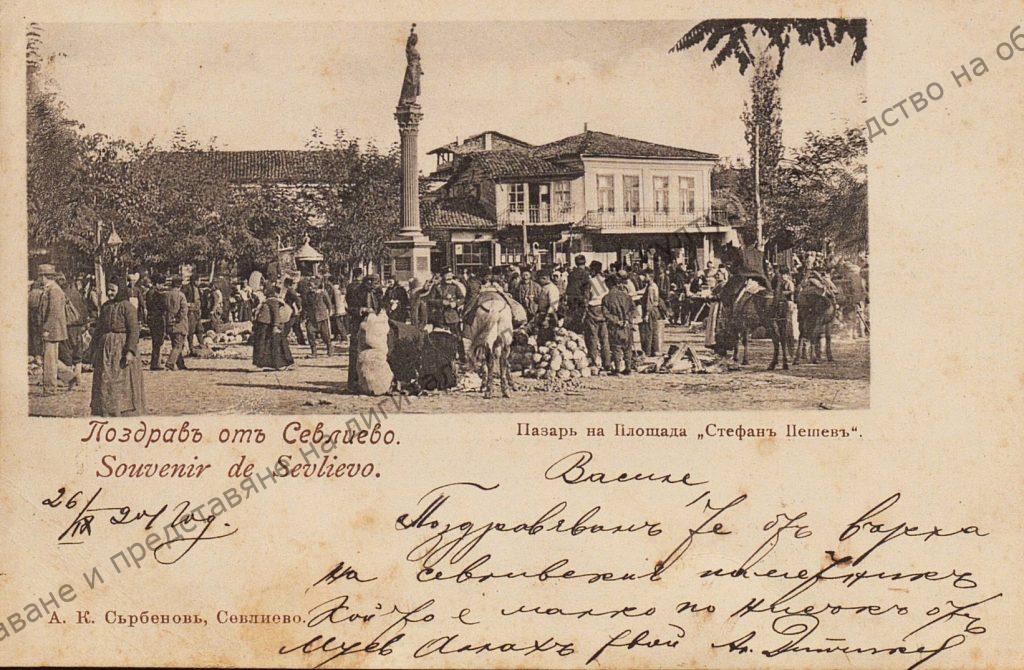 Поздравъ отъ Севлиево.
Souvenir de Sevlievo.
Пазарь на Площада „Стефанъ Пешевъ“.
26/IX 901 год.
Василе,
Поздравявамъ Те отъ варха
на севлиевския паметникъ
Който е малко по нисъкъ отъ
Аллахъ Твой
А. К. Сърбеновъ, Севлиево.
ване и представяне на дигитал
дство на об